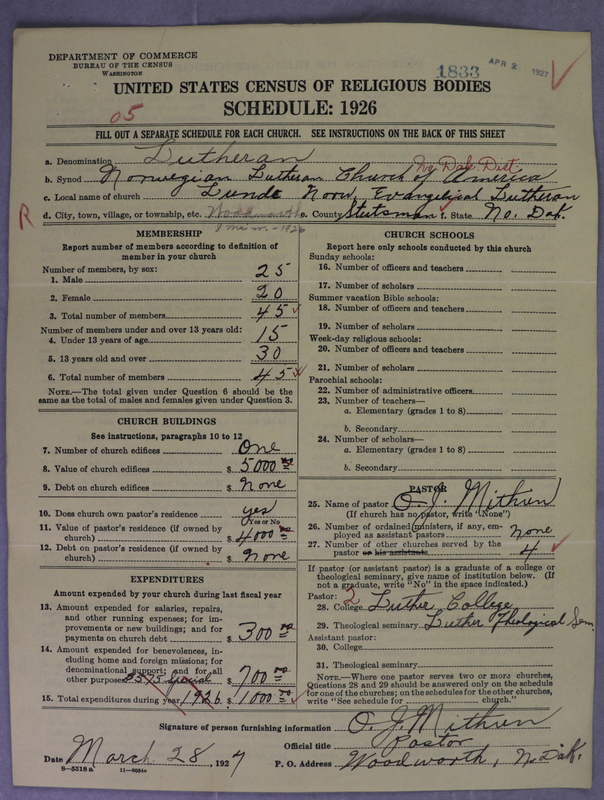 DEPARTMENT OF COMMERCE
BUREAU OF THE CENSUS
WASHINGTON
1833 APR 2 1927
UNITED STATES CENSUS OF RELIGIOUS BODIES
SCHEDULE: 1926
05
FILL OUT A SEPARATE SCHEDULE FOR EACH CHURCH. SEE INSTRUCTIONS ON THE BACK OF THIS SHEET
a. Denomination Lutheran
No Dak Dist
b. Synod Norwegian Lutheran Church of America
c. Local name of church Lunds Norw. Evangelical Lutheran
R d. City, town, village, or township, etc. Woodworth e. County Stutsman f. State No. Dak.
8 mi n. - 1926
MEMBERSHIP
Report number of members according to definition of
member in your church
Number of members, by sex:
1. Male 25
2. Female 20
3. Total number of members 45
Number of members under and over 13 years old:
4. Under 13 years of age 15
5. 13 years old and over 30
6. Total number of members 45
NOTE.—The total given under Question 6 should be
the same as the total of males and females given under Question 3.
CHURCH BUILDINGS
See instructions, paragraphs 10 to 12
7. Number of church edifices One
8. Value of church edifices $ 5000 00
9. Debt on church edifices $ None
10. Does church own pastor's residence? yes
(Yes or No)
11. Value of pastor's residence (if owned by
church) $ 4000 00
12. Debt on pastor's residence (if owned by
church) $ None
EXPENDITURES
Amount expended by your church during last fiscal year
13. Amount expended for salaries, repairs,
and other running expenses; for im-
provements or new buildings; and for
payments on church debt $ 300 00
14. Amount expended for benevolences, in-
cluding home and foreign missions; for
denominational support; and for all
other purposes Special $ 700 00
15. Total expenditures during year 1926 $ 1000 00
CHURCH SCHOOLS
Report here only schools conducted by this church
Sunday schools:
16. Number of officers and teachers
17. Number of scholars
Summer vacation Bible schools:
18. Number of officers and teachers
19. Number of scholars
Week-day religious schools:
20. Number of officers and teachers
21. Number of scholars
Parochial schools:
22. Number of administrative officers
23. Number of teachers—
a. Elementary (grades 1 to 8)
b. Secondary
24. Number of scholars—
a. Elementary (grades 1 to 8)
b. Secondary
PASTOR
25. Name of pastor O. J. Mithun
(If church has no pastor, write "None")
26. Number of ordained ministers, if any, em-
ployed as assistant pastors None
27. Number of other churches served by the
pastor or his assistants 4
If pastor (or assistant pastor) is a graduate of a college or
theological seminary, give name of institution below. (If
not a graduate, write "No" in the space indicated.)
Pastor: 2
28. College Luther College
29. Theological seminary Luther Theological Sem.
Assistant pastor:
30. College
31. Theological seminary
NOTE.—Where one pastor serves two or more churches,
Questions 28 and 29 should be answered only on the schedule
for one of the churches; on the schedules for the other churches,
write "See schedule for church."
Signature of person furnishing information O. J. Mithun
Official title Pastor
Date March 28, 1927 P. O. Address Woodworth, N. Dak.
8—5518a